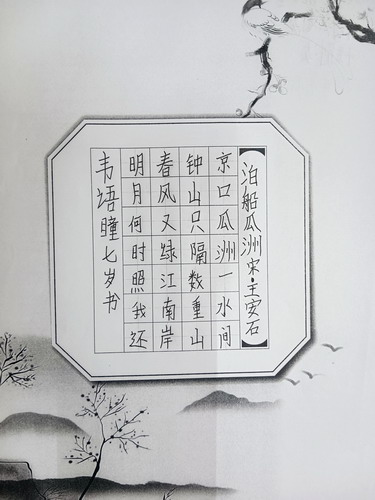 泊船瓜洲 宋·王安石
京口瓜洲一水间
钟山只隔数重山
春风又绿江南岸
明月何时照我还
韦语瞳七岁书